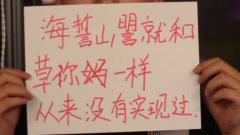 海誓山盟就和
草你妈一样
从来没有实现过.